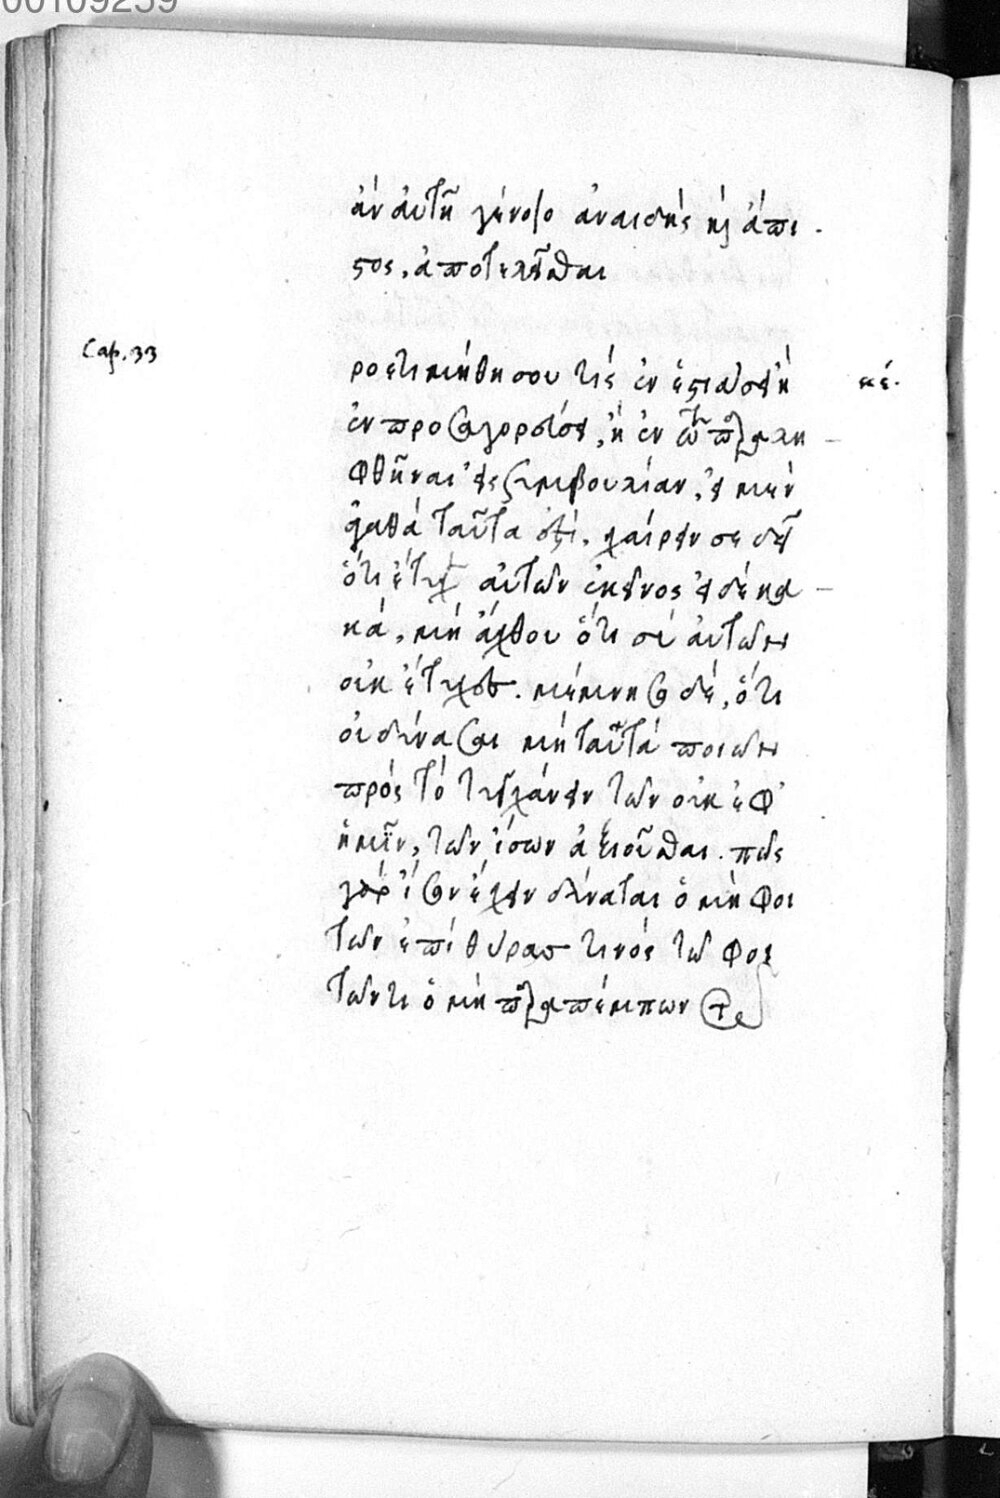 00109259
ἂν αὐτῇ γένοιο ἀναιδὴς καὶ ἄπι
στος, ἀποτελεῖσθαι
Cap. 33
ροετιμήθη σου τίς ἐν ἑστιάσει ἢ
κέ.
ἐν προσαγορεύσει, ἢ ἐν τῶ παραλη
φθῆναι εἰς συμβουλίαν, εἰ μὲν
ἀγαθὰ ταῦτα ἐστί, χαίρειν σε δεῖ
ὅτι ἔτυχεν αὐτῶν ἐκεῖνος εἰ δὲ κα
κά, μὴ ἄχθου ὅτι σὺ αὐτῶν
οὐκ ἔτυχες. μέμνησο δέ, ὅτι
οὐ δύνασαι μὴ ταῦτὰ ποιῶν
πρὸς τὸ τυγχάνειν τῶν οὐκ ἐφ'
ἡμῖν, τῶν ἴσων ἀξιοῦσθαι. πῶς
γὰρ ἴσον ἔχειν δύναται ὁ μὴ φοι
τῶν ἐπὶ θύρας τινὸς τῶ φοι
τῶντι ὁ μὴ παραπέμπων τῶ